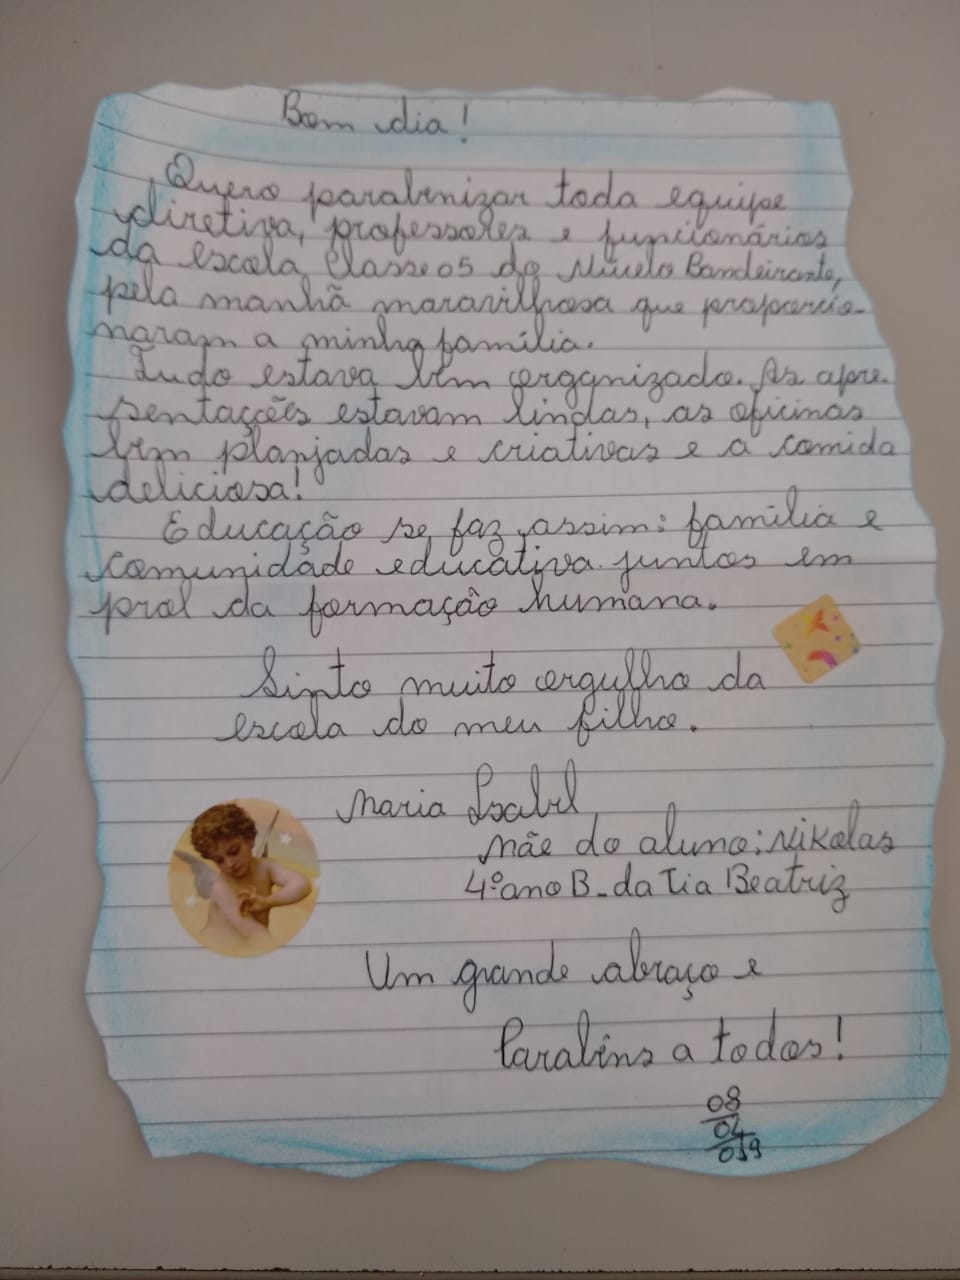 Bom dia!
Quero parabenizar toda equipe
diretiva, professores e funcionários
da escola Classe 05 do Núcleo Bandeirante,
pela manhã maravilhosa que proporcio-
naram a minha família.
Tudo estava bem organizado. As apre-
sentações estavam lindas, as oficinas
bem planjadas e criativas e a comida
deliciosa!
Educação se faz assim: família e
comunidade educativa juntos em
prol da formação humana.
Sinto muito orgulho da
escola do meu filho.
Maria Isabel
mãe do aluno: Nikolas
4º ano B - da Tia Beatriz
Um grande abraço e
Parabéns a todos!
08
04
019